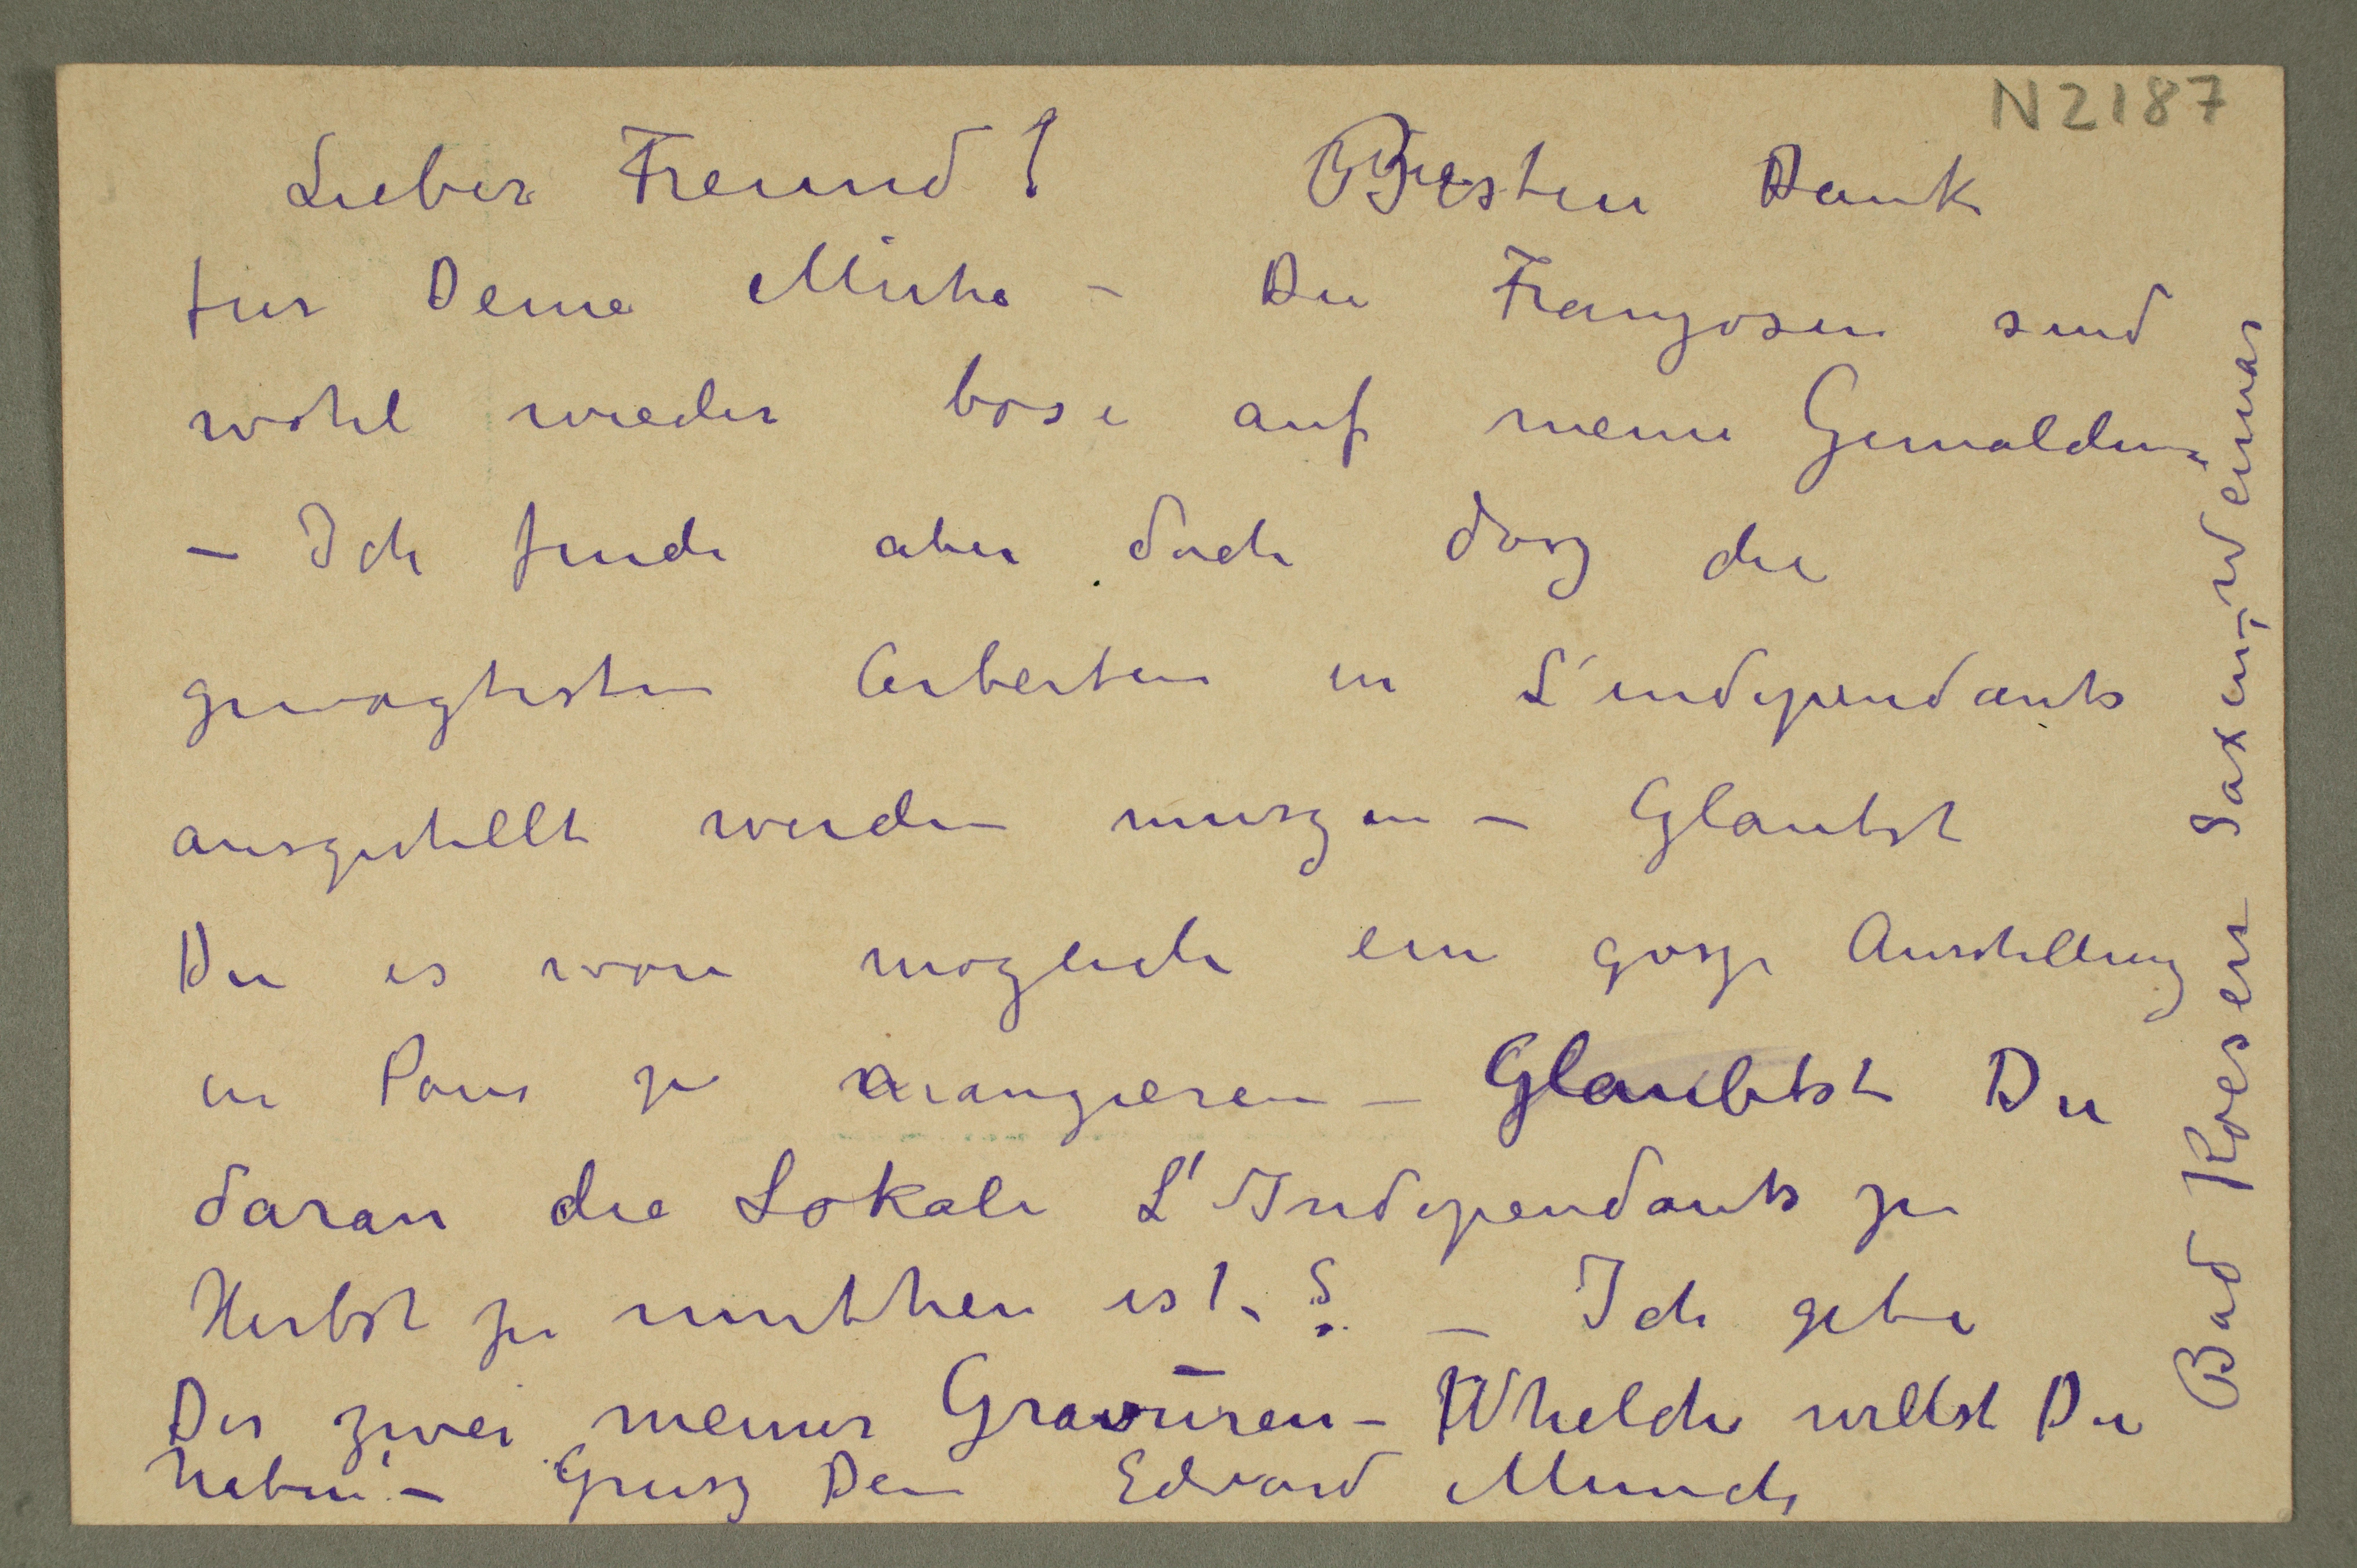 N2187
Lieber Freund! Besten Dank
fur Deine Muhe – Die Franzosen sind
wohl wieder bose auf meine Gemalden
– Ich finde aber doch dasz die
gewagtesten Arbeiten in L'independants
ausgestellt werden muszen – Glaubst
Du es ware moglich ein grosze Ausstellung
in Paris zu arangieren – Glaubtst Du
daran die Lokale L'Independants zu
Herbst zu miethen ist. ? – Ich gebe
Dir zwei meiner Gravuren – Whelche willst Du
haben! – Grusz Dein Edvard Munch
Bad Koesen Saxen-Weimar